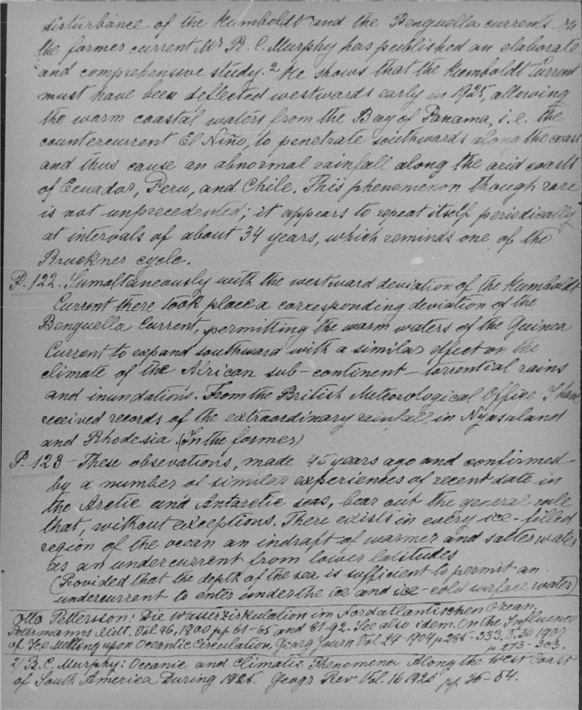 disturbance of the Humboldt and the Benguella currents. On
the former current Mr R. C. Murphy has published an elaborate
and comprehensive study.2 He shows that the Humboldt Current
must have been deflected westwards early in 1925, allowing
the warm coastal waters from the Bay of Panama, i.e. the
countercurrent El Niño, to penetrate southwards along the coast
and thus cause an abnormal rainfall along the arid coasts
of Ecuador, Peru, and Chile. This phenomenon though rare
is not unprecedented; it appears to repeat itself periodically
at intervals of about 34 years, which reminds one of the
Bruckner cycle.
P. 122. Sumaltaneously with the westward deviation of the Humboldt
Current there took place a corresponding deviation of the
Benguella Current, permitting the warm waters of the Guinea
Current to expand southward with a similar effect on the
climate of the African sub-continent - torrential rains
and inundations. From the British Meteorological Office I have
received records of the extraordinary rainfall in Nyasaland
and Rhodesia (In the former)
P. 123 - These obsevations, made 45 years ago and confirmed
by a number of similar experiences of recent date in
the Arctic and Antarctic seas, bear out the general rule
that, without exceptions. There exists in every ice-filled
region of the ocean an indraft of warmer and salter water
as an undercurrent from lower latitudes
(Provided that the depth of the sea is sufficient to permit an
undercurrent to enter under the ice and ice-cold surface water)
Otto Pettersson: Die Wasserzirkulation in Nordatlantischen Ocean,
Petermannes Mitt. Vol 46, 1900 pp 61-65 and 81-92. See also idem. On the Influence
of Ice Melting upon Oceanic Circulation, Geogr Journ Vol. 24 1904 p 285-333,
p 273-303.
2/ R.C. Murphy: Oceanic and Climatic Phenomena Along the West Coast
of South America During 1925. Geogr Rev Vol. 16 1926 pp 26-54.